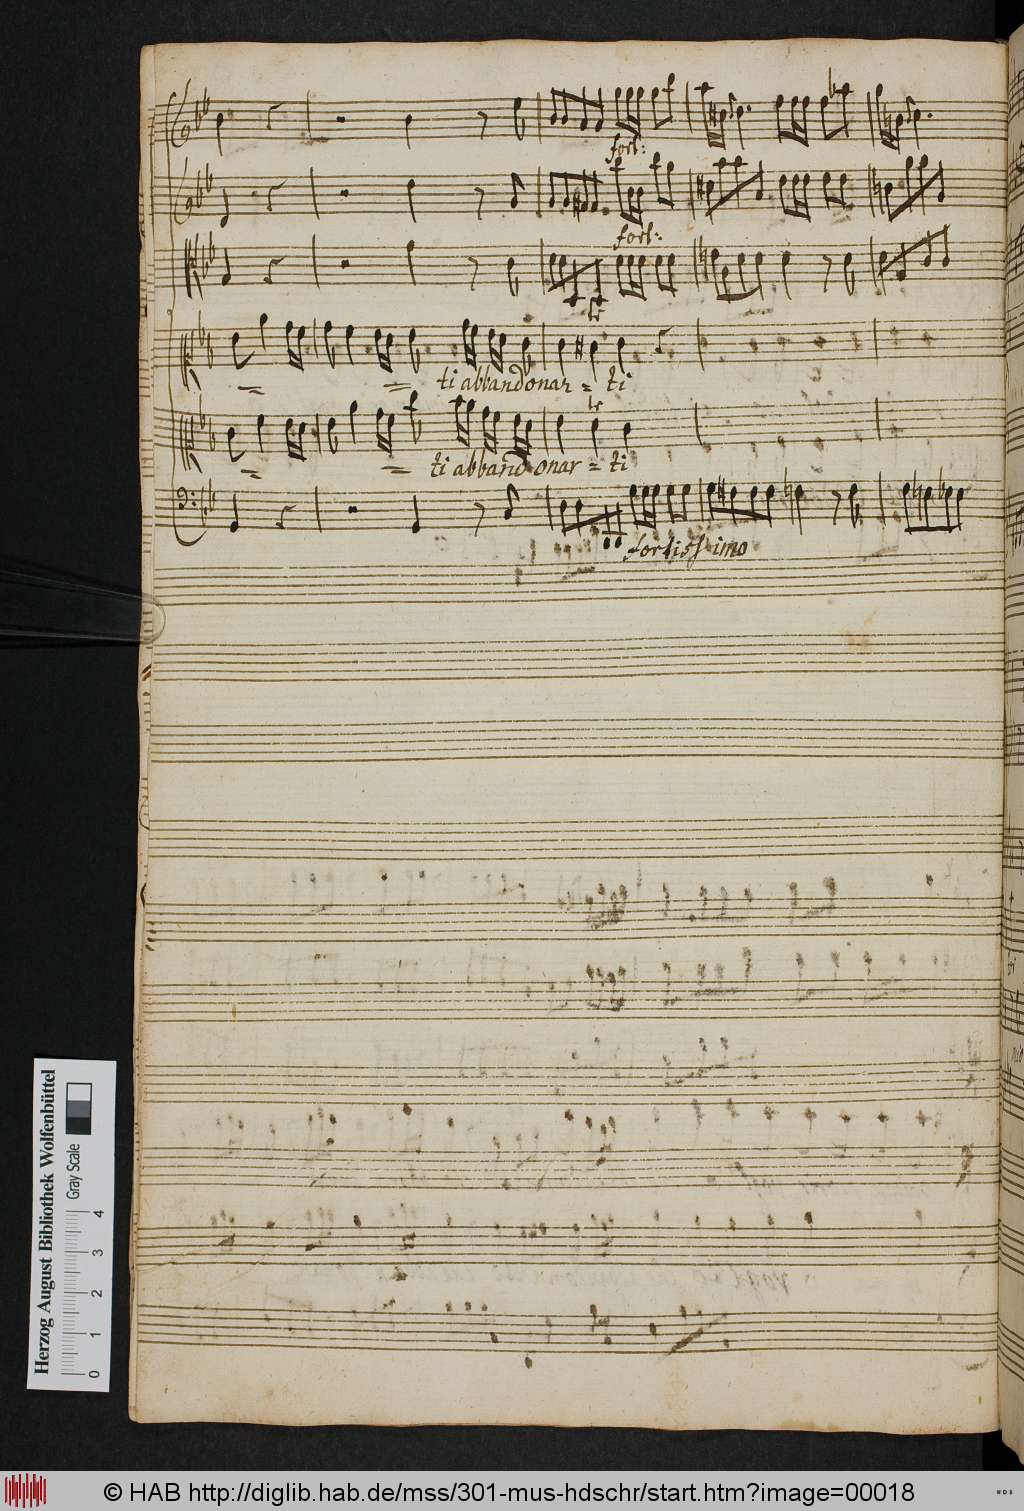 fort:
fort:
tr
ti abbandonar = ti
tr
ti abbandonar = ti
fortissimo
Herzog August Bibliothek Wolfenbüttel
Gray Scale
0 1 2 3 4
© HAB http://diglib.hab.de/mss/301-mus-hdschr/start.htm?image=00018